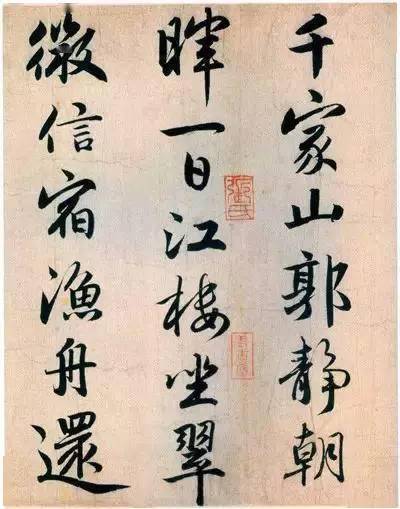 千家山郭静朝
晖一日江楼坐翠
微信宿渔舟還